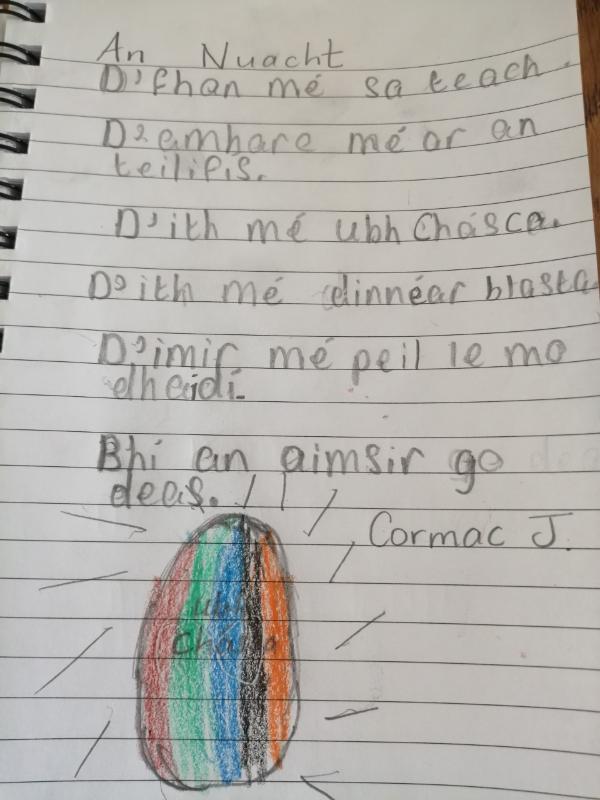 An Nuacht
D'fhan mé sa teach.
D'eamharc mé ar an
teilifís.
D'ith mé ubh Chásca.
D'ith mé dinnéar blasta.
D'imir mé peil le mo
dheaidí.
Bhí an aimsir go
deas.
Cormac J.
ubh